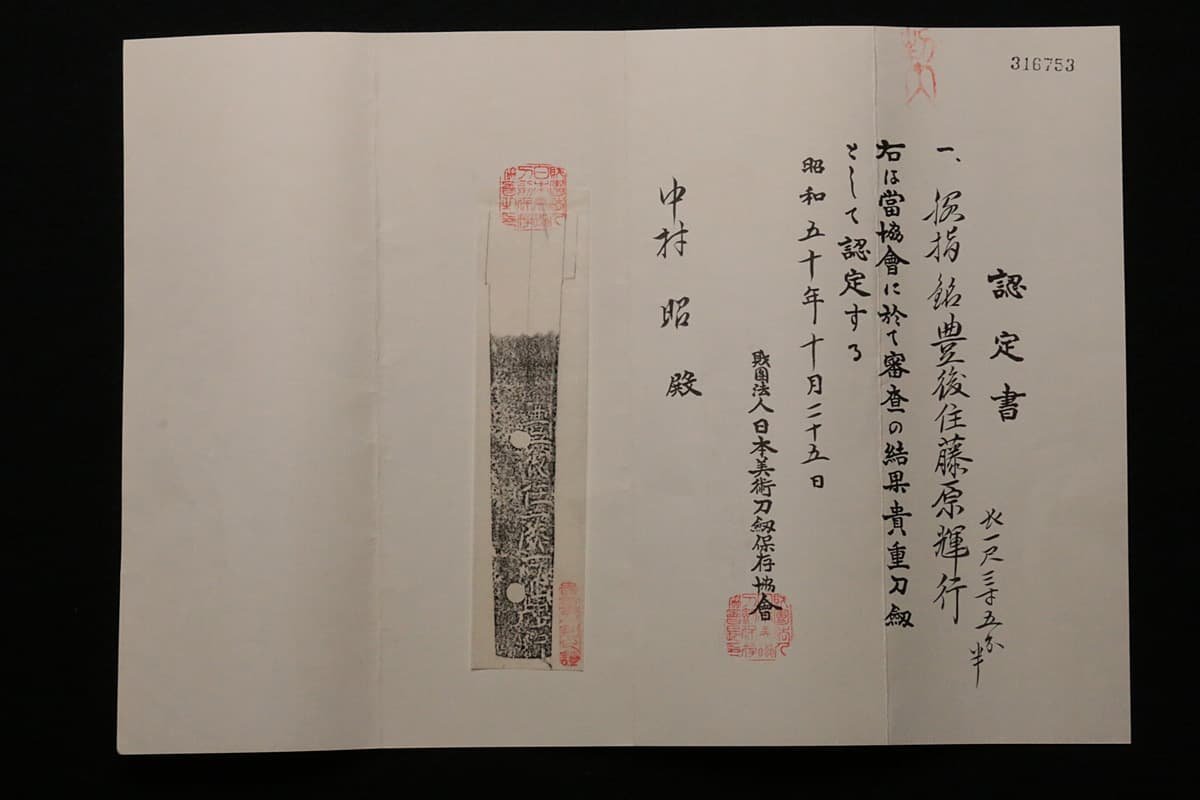 316753
認定書
一、脇指 銘 豊後住藤原輝行
長一尺三寸五分半
右は當協會に於て審査の結果貴重刀剱
として認定する
昭和五十年十月二十五日
財團法人日本美術刀剱保存協會
中村 昭 殿